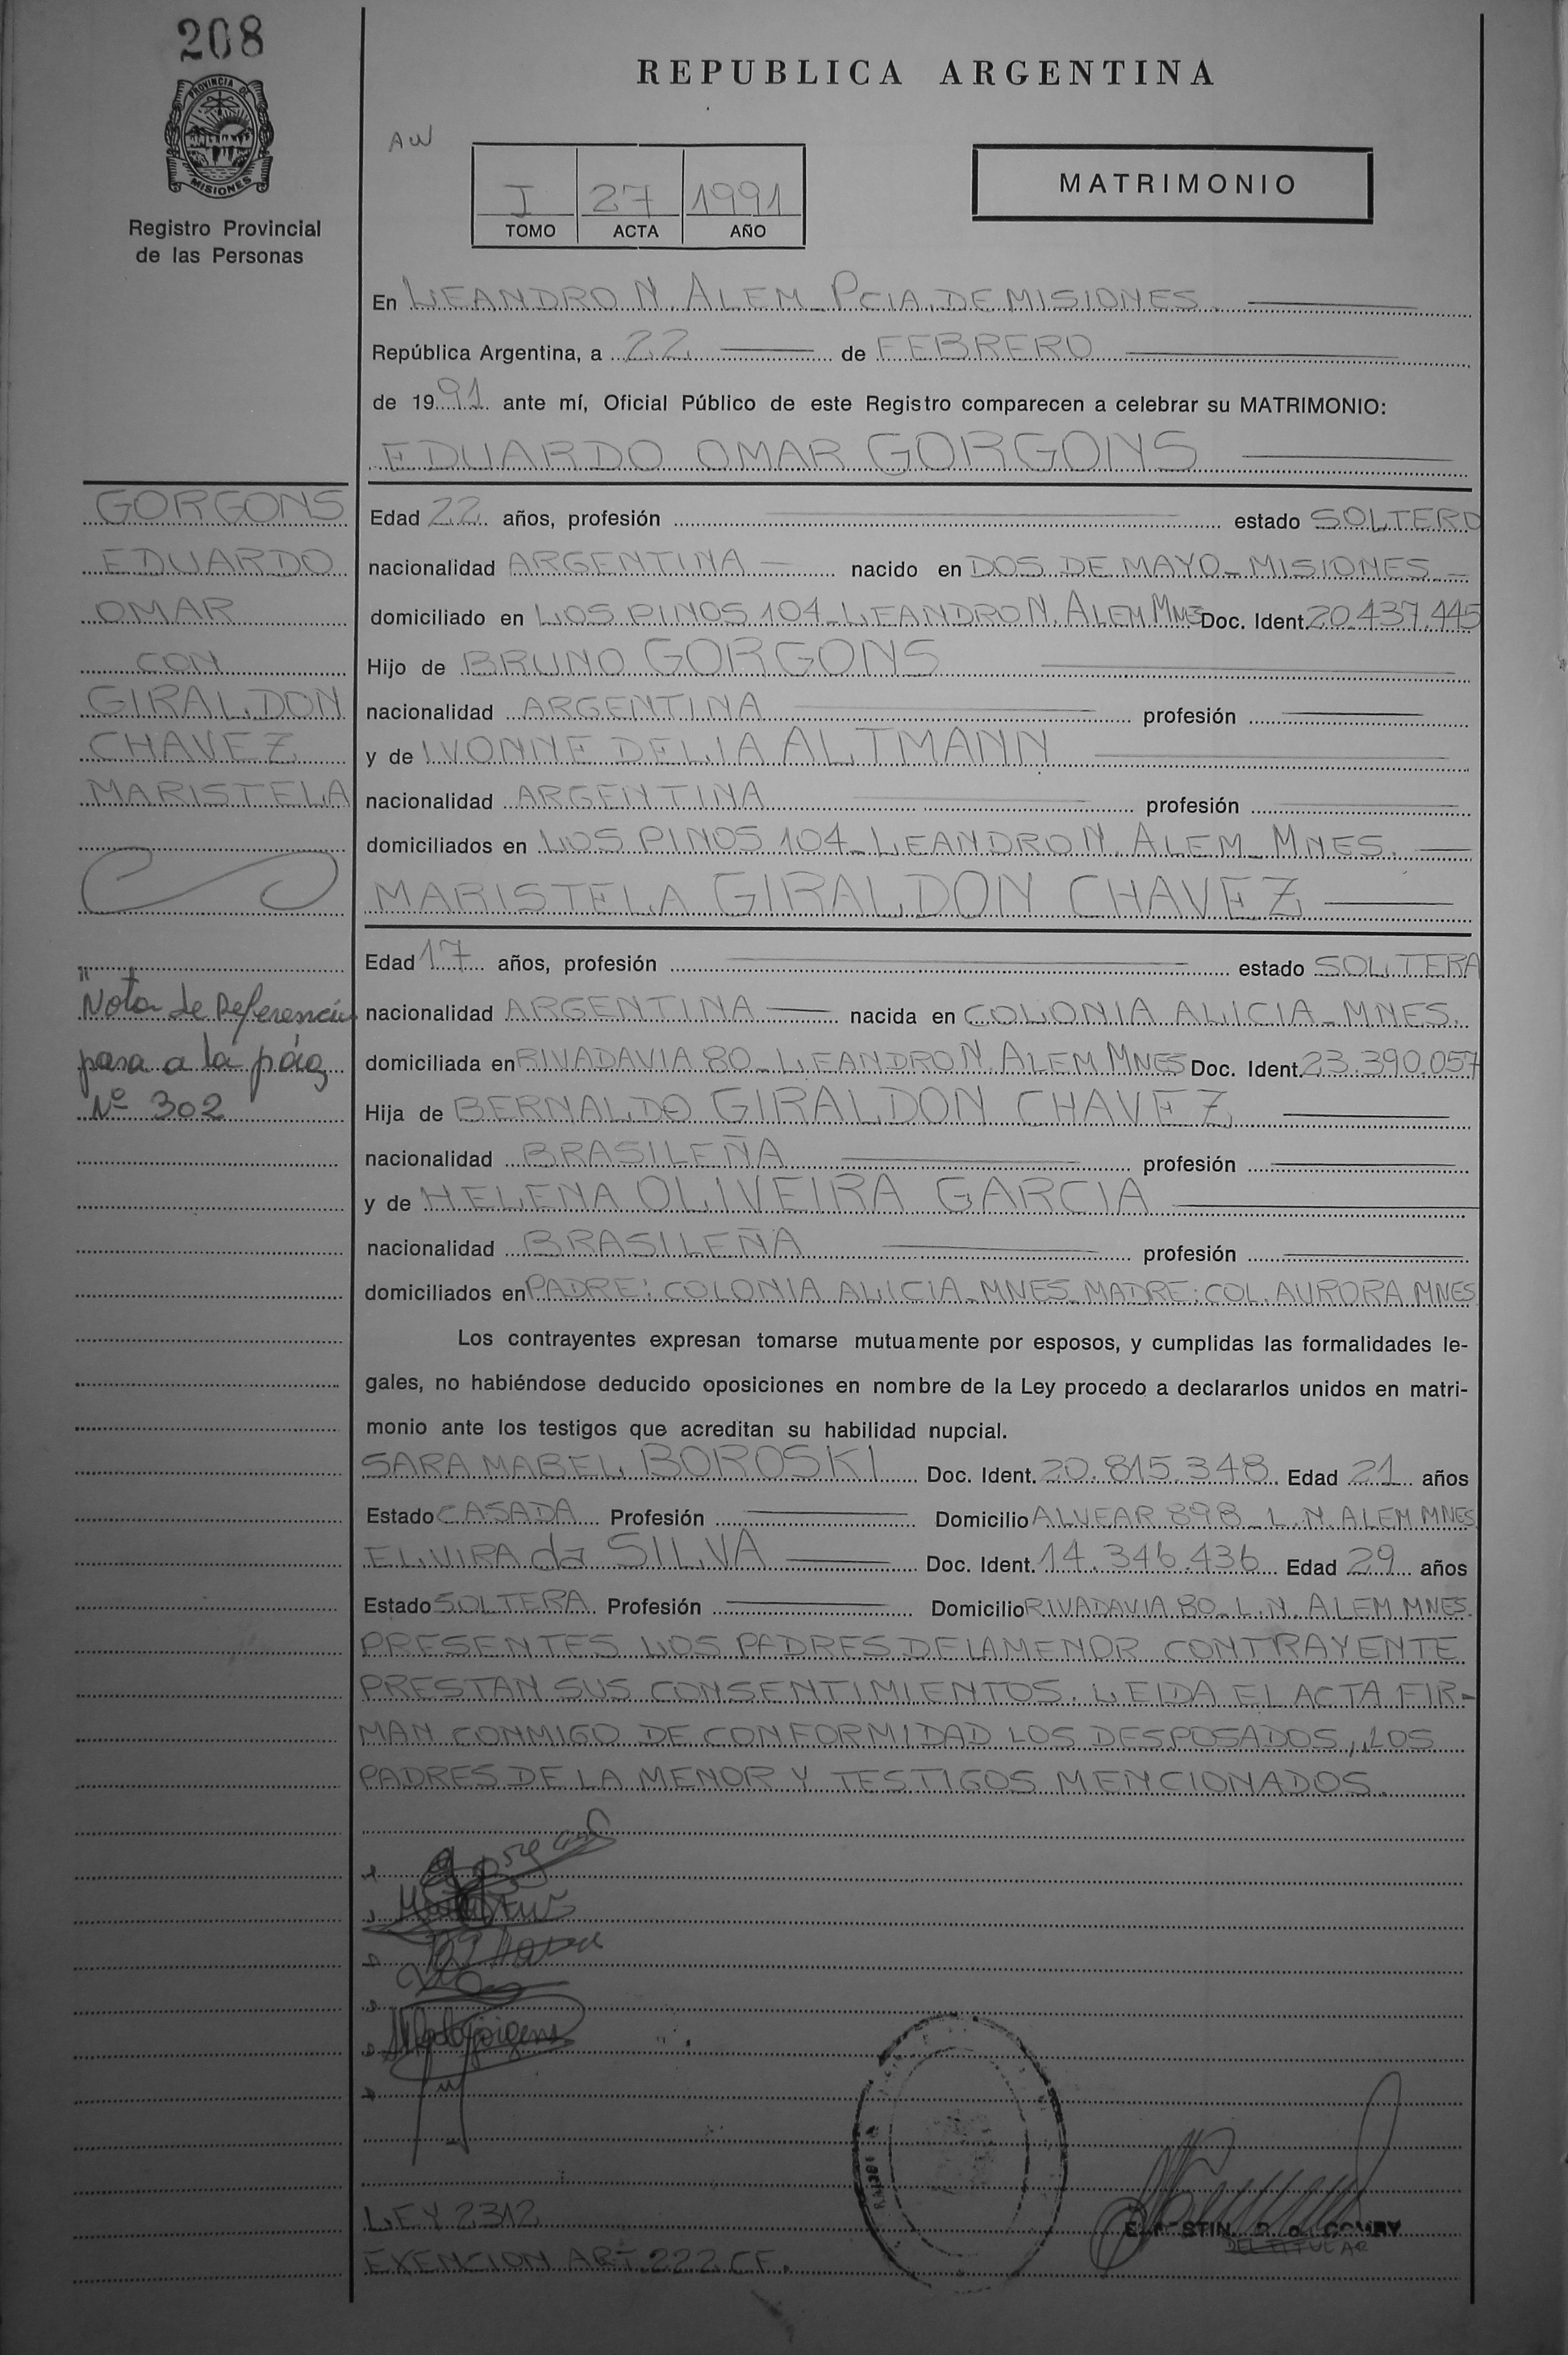 208
PROVINCIA DE
MISIONES
Registro Provincial
de las Personas
REPUBLICA ARGENTINA
AW
I 27 1991
TOMO ACTA AÑO
MATRIMONIO
En LEANDRO N. ALEM - PCIA. DE MISIONES.
República Argentina, a 22 de FEBRERO
de 1991 ante mí, Oficial Público de este Registro comparecen a celebrar su MATRIMONIO:
EDUARDO OMAR GORGONS
GORGONS
EDUARDO
OMAR
CON
GIRALDON
CHAVEZ
MARISTELA
Edad 22 años, profesión estado SOLTERO
nacionalidad ARGENTINA nacido en DOS DE MAYO - MISIONES -
domiciliado en LOS PINOS 104 - LEANDRO N. ALEM MNES Doc. Ident. 20.437.445
Hijo de BRUNO GORGONS
nacionalidad ARGENTINA profesión
y de IVONNE DELIA ALTMANN
nacionalidad ARGENTINA profesión
domiciliados en LOS PINOS 104 - LEANDRO N. ALEM - MNES.
MARISTELA GIRALDON CHAVEZ
"Nota de Referencia
pasa a la pág
Nº 302
Edad 17 años, profesión estado SOLTERA
nacionalidad ARGENTINA nacida en COLONIA ALICIA - MNES.
domiciliada en RIVADAVIA 80 - LEANDRO N. ALEM MNES Doc. Ident. 23.390.057
Hija de BERNALDO GIRALDON CHAVEZ
nacionalidad BRASILEÑA profesión
y de HELENA OLIVEIRA GARCIA
nacionalidad BRASILEÑA profesión
domiciliados en PADRE: COLONIA ALICIA - MNES - MADRE: COL. AURORA MNES
Los contrayentes expresan tomarse mutuamente por esposos, y cumplidas las formalidades le-
gales, no habiéndose deducido oposiciones en nombre de la Ley procedo a declararlos unidos en matri-
monio ante los testigos que acreditan su habilidad nupcial.
SARA MABEL BOROSKI Doc. Ident. 20.815.348 Edad 21 años
Estado CASADA Profesión Domicilio ALVEAR 898 - L.N. ALEM MNES
ELVIRA da SILVA Doc. Ident. 14.346.436 Edad 29 años
Estado SOLTERA Profesión Domicilio RIVADAVIA 80 - L.N. ALEM MNES.
PRESENTES LOS PADRES DE LA MENOR CONTRAYENTE
PRESTAN SUS CONSENTIMIENTOS. LEIDA EL ACTA FIR-
MAN CONMIGO DE CONFORMIDAD LOS DESPOSADOS, LOS
PADRES DE LA MENOR Y TESTIGOS MENCIONADOS.
LEY 2312
EXENCION ART. 222 CF.
DEL TITULAR